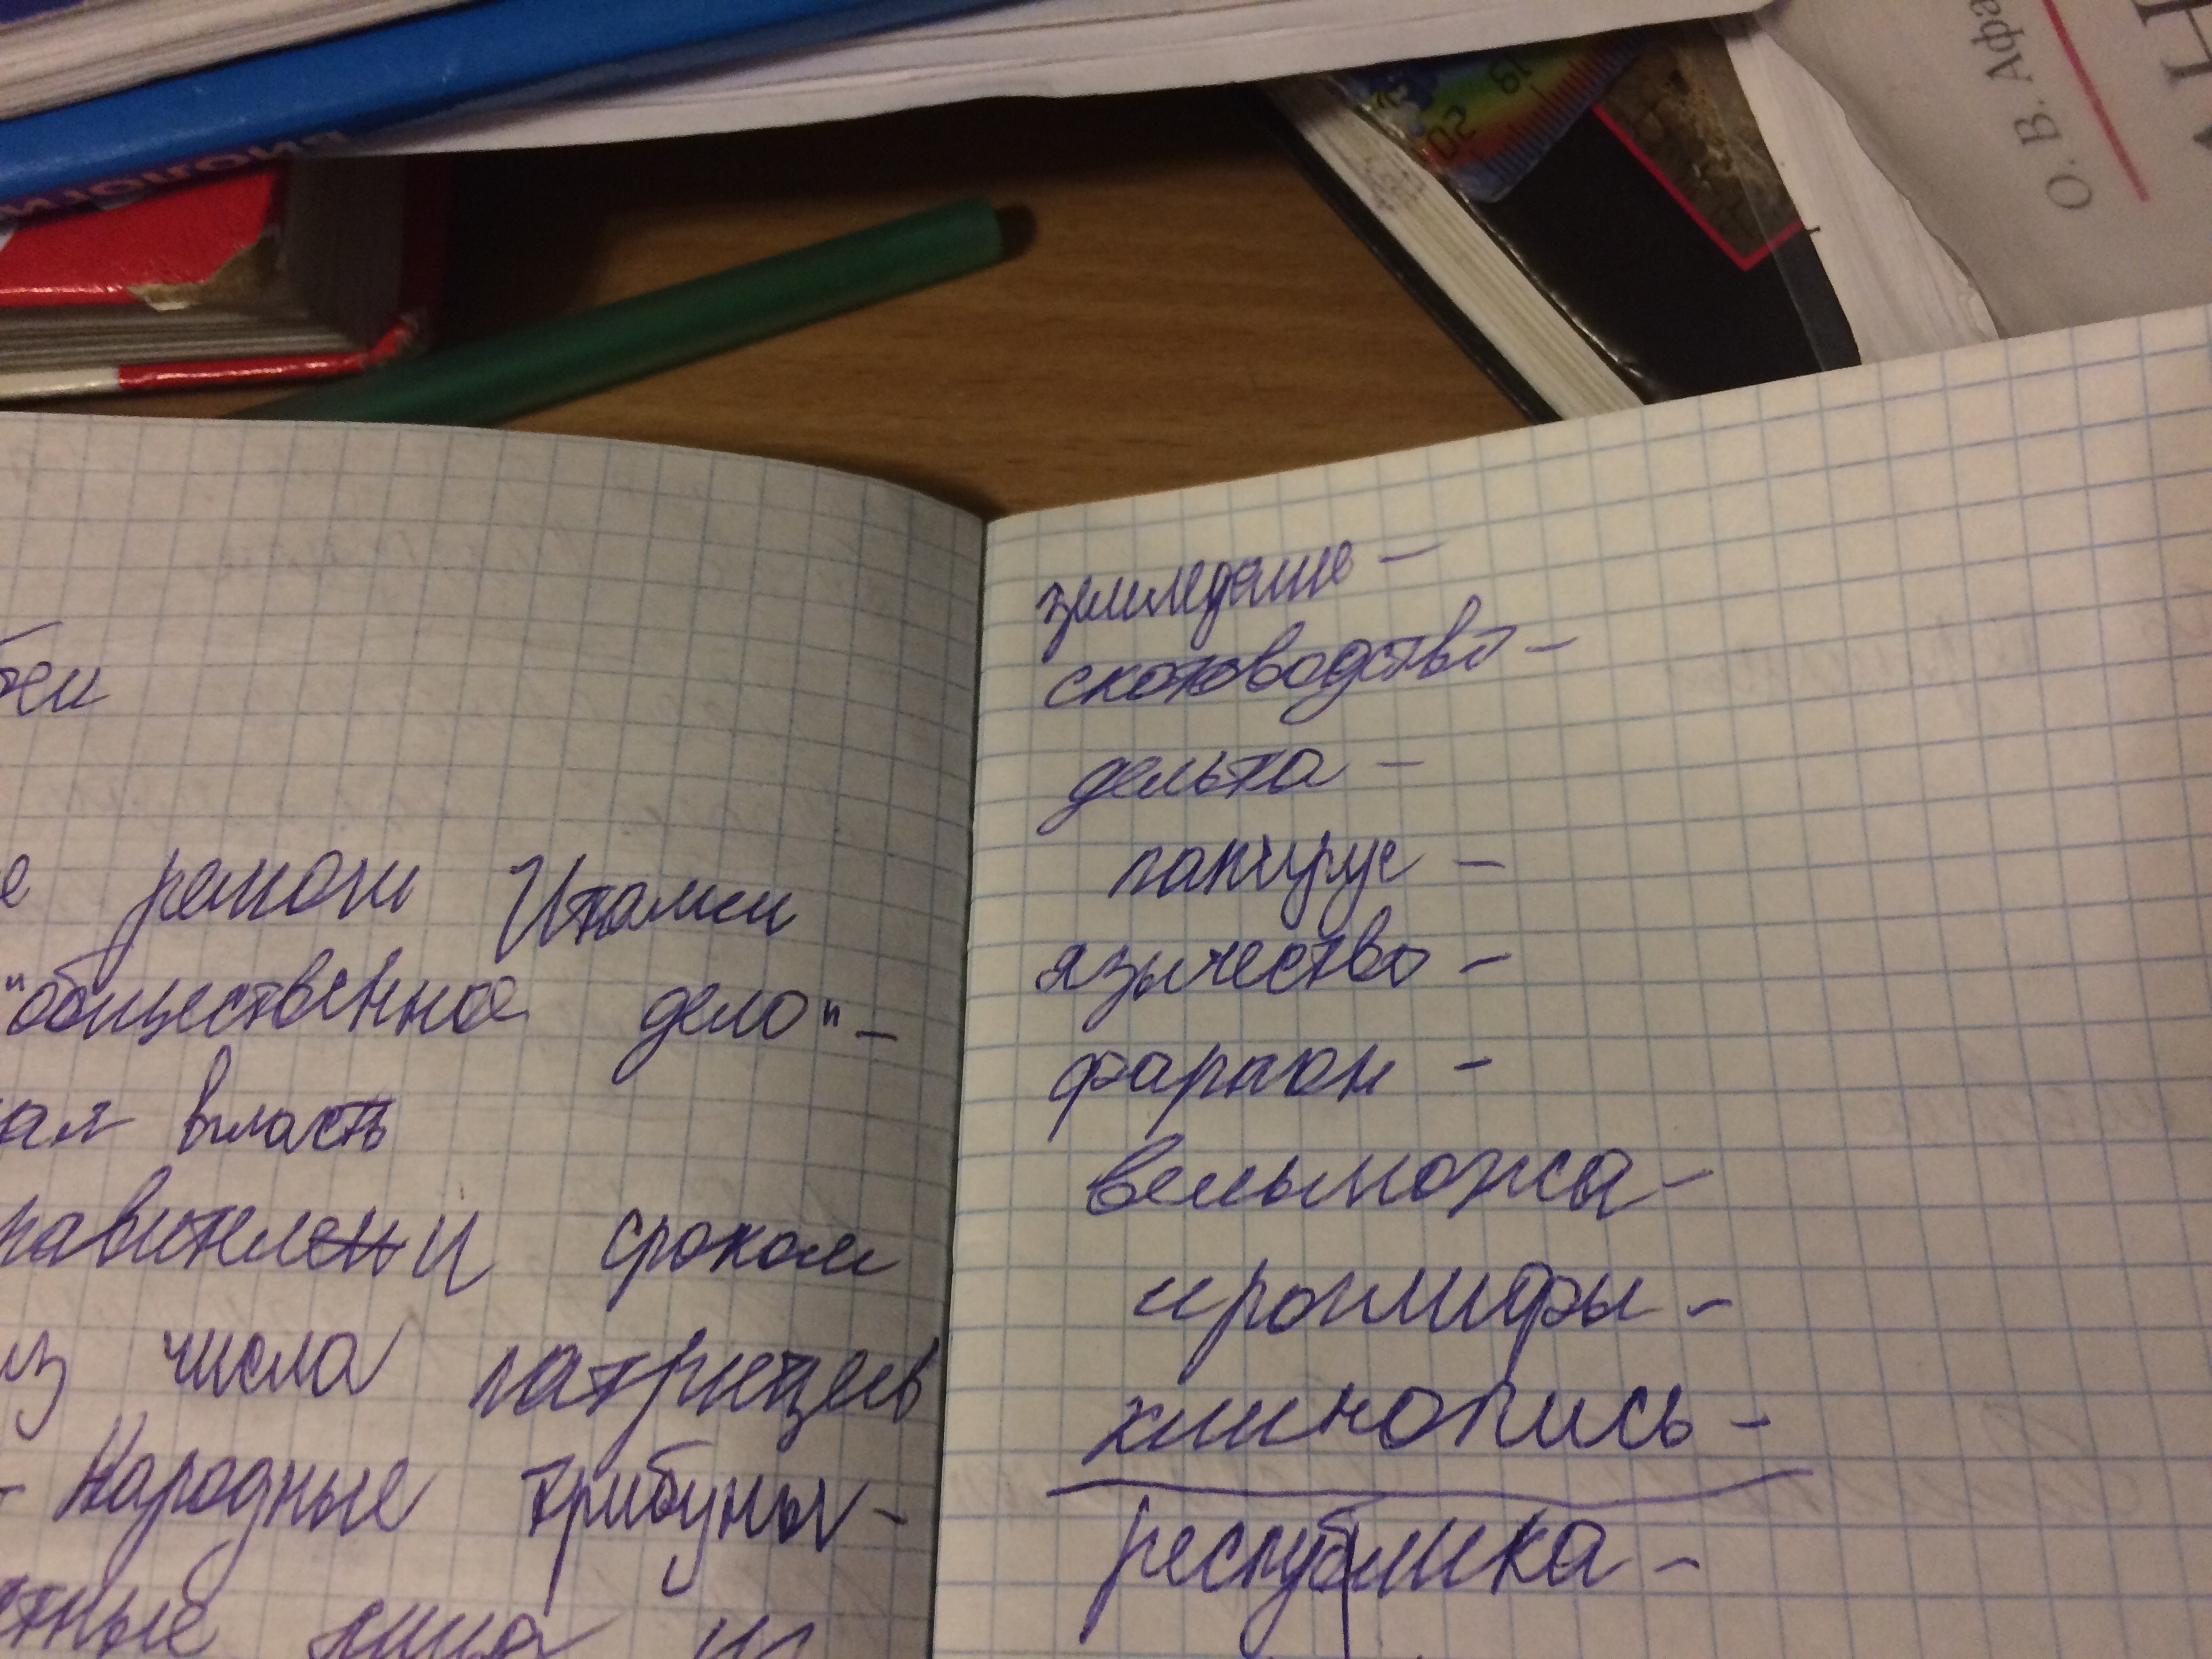 О. В. Афа
19
20
земледелие -
скотоводство -
дельта -
папирус -
язычество -
фараон -
вельможа -
ироглифы -
клинопись -
республика -
е регион Италии
"общественное дело" -
ая власть
равителении сроком
из числа патрициев
- Народные трибуны -
тные лица и